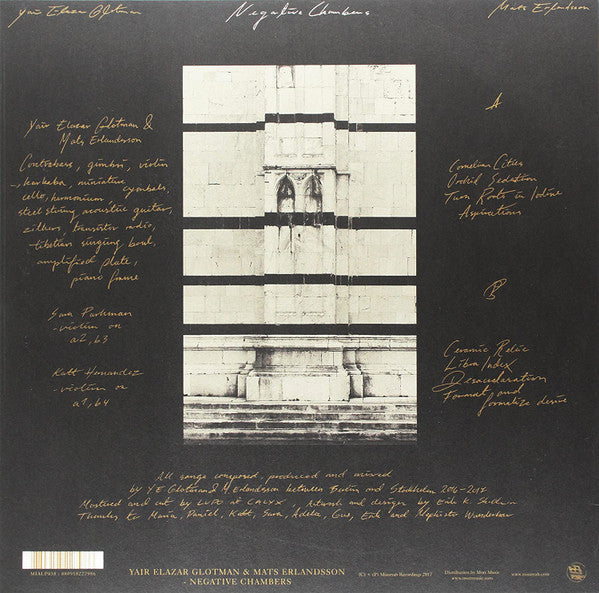 Yair Elazar Glotman
Negative Chambers
Mats Erlandsson
Yair Elazar Glotman &
Mats Erlandsson
Contrabass, gimbri, violin
karkaba, miniature cymbals,
cello, harmonium,
steel string acoustic guitar,
zithers, transistor radio,
tibetian singing bowl,
amplified plate,
piano frame
Sara Parkman
- violin on
a2, b3
Katt Hernandez
- violin on
a1, b4
A
Cornelian Cities
Orchid Sedation
Twin Roots in Iodine
Aspirations
B
Ceramic Relic
Libra Index
Desacralization
Format and
formalize desire
All songs composed, produced and mixed
by Y E Glotman & M Erlandsson between Berlin and Stockholm 2016-2017
Mastered and cut by LUPO at CALYX, Artwork and design by Erik K
Thanks to Maria, Daniel, Katt, Sara, Adela, Gus, Erik and Mephisto Wunderbar
YAIR ELAZAR GLOTMAN & MATS ERLANDSSON
- NEGATIVE CHAMBERS
(C) + (P) Miasmah Recordings 2017
Distribution by Morr Music
www.morrmusic.com
www.miasmah.com